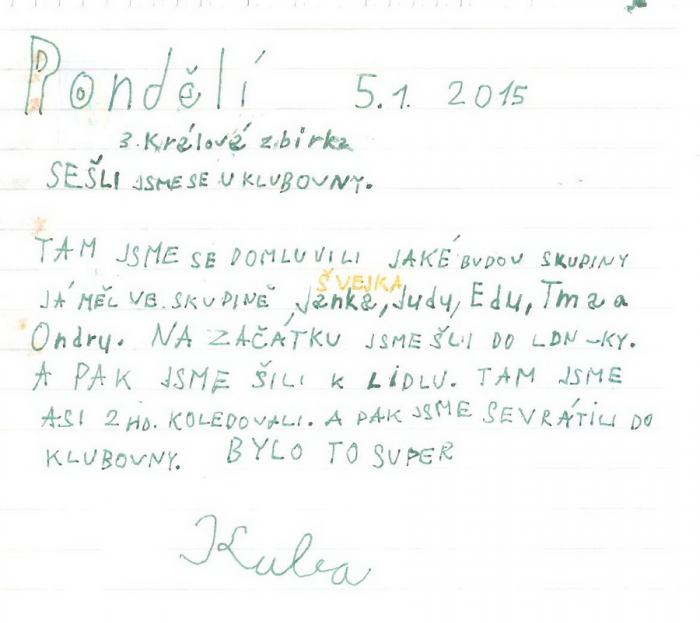 Pondělí 5.1. 2015
3. Králové zbírka
SEŠLI JSMESE U KLUBOVNY.
TAM JSME SE DOMLUVILI JAKÉ BUDOU SKUPINY
ŠVEJKA
JÁ MĚL VE. SKUPINĚ Janka, Judy, Edu, Tma a
Ondry. NA ZAČÁTKU JSME ŠLI DO LDN-KY.
A PAK JSME ŠILI K LIDLU. TAM JSME
ASI 2 HD. KOLEDOVALI. A PAK JSME SEVRÁTILI DO
KLUBOVNY. BYLO TO SUPER
Kuba